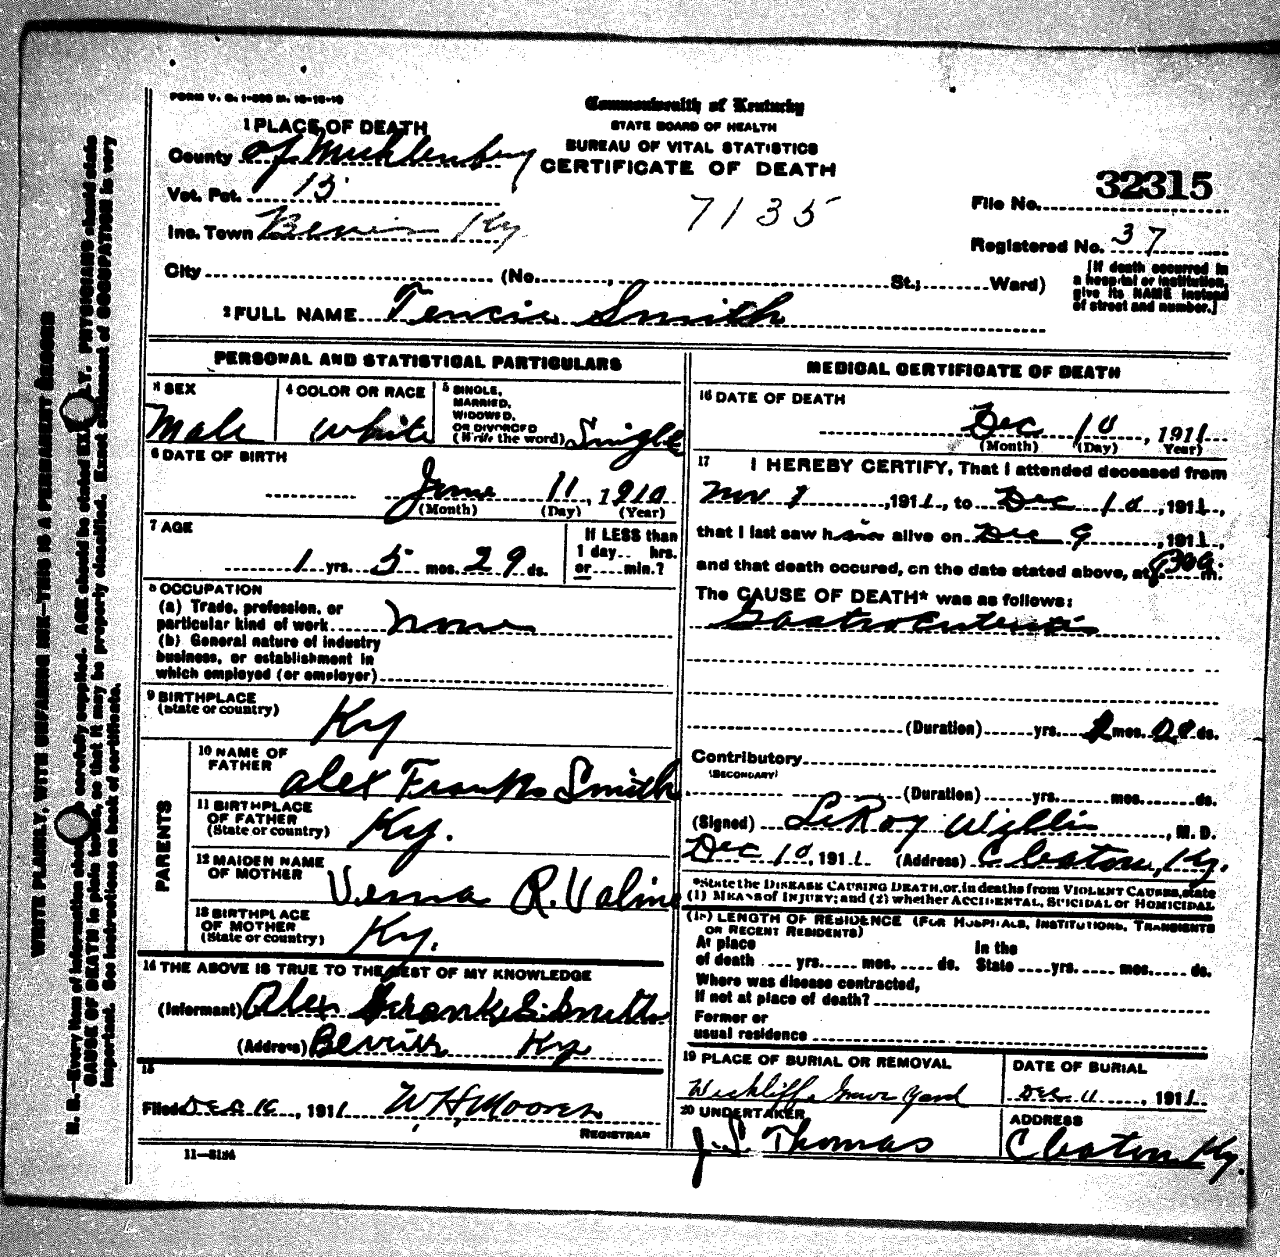 FORM V. S. 1-
Commonwealth of Kentucky
STATE BOARD OF HEALTH
BUREAU OF VITAL STATISTICS
CERTIFICATE OF DEATH
1 PLACE OF DEATH
County of Muhlenberg
Vot. Pct. 15
Inc. Town Ky
7135
32315
File No.
Registered No. 37
City (No. , St.; Ward)
[If death occurred in a hospital or institution, give its NAME instead of street and number.]
2 FULL NAME Tencie Smith
PERSONAL AND STATISTICAL PARTICULARS
3 SEX
Male
4 COLOR OR RACE
White
5 SINGLE, MARRIED, WIDOWED, OR DIVORCED (Write the word) Single
6 DATE OF BIRTH
June 11, 1910
(Month) (Day) (Year)
7 AGE
1 yrs. 5 mos. 29 ds.
If LESS than 1 day.. hrs. or....min.?
8 OCCUPATION
(a) Trade, profession, or
particular kind of work None
(b) General nature of industry
business, or establishment in
which employed (or employer)
9 BIRTHPLACE
(State or country)
Ky
PARENTS
10 NAME OF FATHER
Alex Franks Smith
11 BIRTHPLACE OF FATHER
(State or country) Ky.
12 MAIDEN NAME OF MOTHER
Verna R.
13 BIRTHPLACE OF MOTHER
(State or country) Ky.
14 THE ABOVE IS TRUE TO THE BEST OF MY KNOWLEDGE
(Informant) Alex Franks Smith
(Address) Ky
15
Filed Dec , 1911 W H Moores
REGISTRAR
11-
MEDICAL CERTIFICATE OF DEATH
16 DATE OF DEATH
Dec 10, 1911
(Month) (Day) (Year)
17 I HEREBY CERTIFY, That I attended deceased from
Nov , 1911, to Dec 10, 1911,
that I last saw him alive on Dec 9, 1911,
and that death occured, on the date stated above, at m.
The CAUSE OF DEATH* was as follows:
Gastro Enteritis
(Duration) yrs. mos. ds.
Contributory
(SECONDARY)
(Duration) yrs. mos. ds.
(Signed) LeRoy , M. D.
Dec 10, 1911 (Address) Cleaton, Ky.
*State the DISEASE CAUSING DEATH, or, in deaths from VIOLENT CAUSES, state
(1) MEANS of INJURY; and (2) whether ACCIDENTAL, SUICIDAL or HOMICIDAL
LENGTH OF RESIDENCE (FOR HOSPITALS, INSTITUTIONS, TRANSIENTS
OR RECENT RESIDENTS)
At place of death yrs. mos. ds. In the State yrs. mos. ds.
Where was disease contracted,
If not at place of death?
Former or
usual residence
19 PLACE OF BURIAL OR REMOVAL
Wickliffe Grave Yard
DATE OF BURIAL
Dec 11, 1911
20 UNDERTAKER
J. S. Thomas
ADDRESS
Cleaton Ky.
WRITE PLAINLY, WITH UNFADING INK—THIS IS A PERMANENT RECORD
N. B.—Every item of information should be carefully supplied. AGE should be stated EXACTLY. PHYSICIANS should state
CAUSE OF DEATH in plain terms, so that it may be properly classified. Exact statement of OCCUPATION is very
important. See instructions on back of certificate.